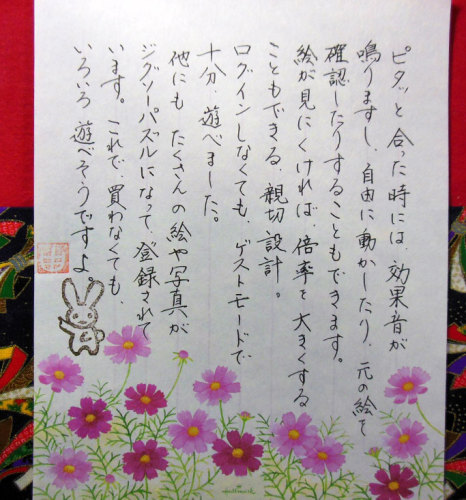 ピタッと合った時には、効果音が
鳴りますし、自由に動かしたり、元の絵を
確認したりすることもできます。
絵が見にくければ、倍率を大きくする
こともできる、親切設計。
ログインしなくても、ゲストモードで
十分、遊べました。
他にも たくさんの絵や写真が
ジグソーパズルになって、登録されて
います。これで、買わなくても、
いろいろ 遊べそうですよ。
Hallmark